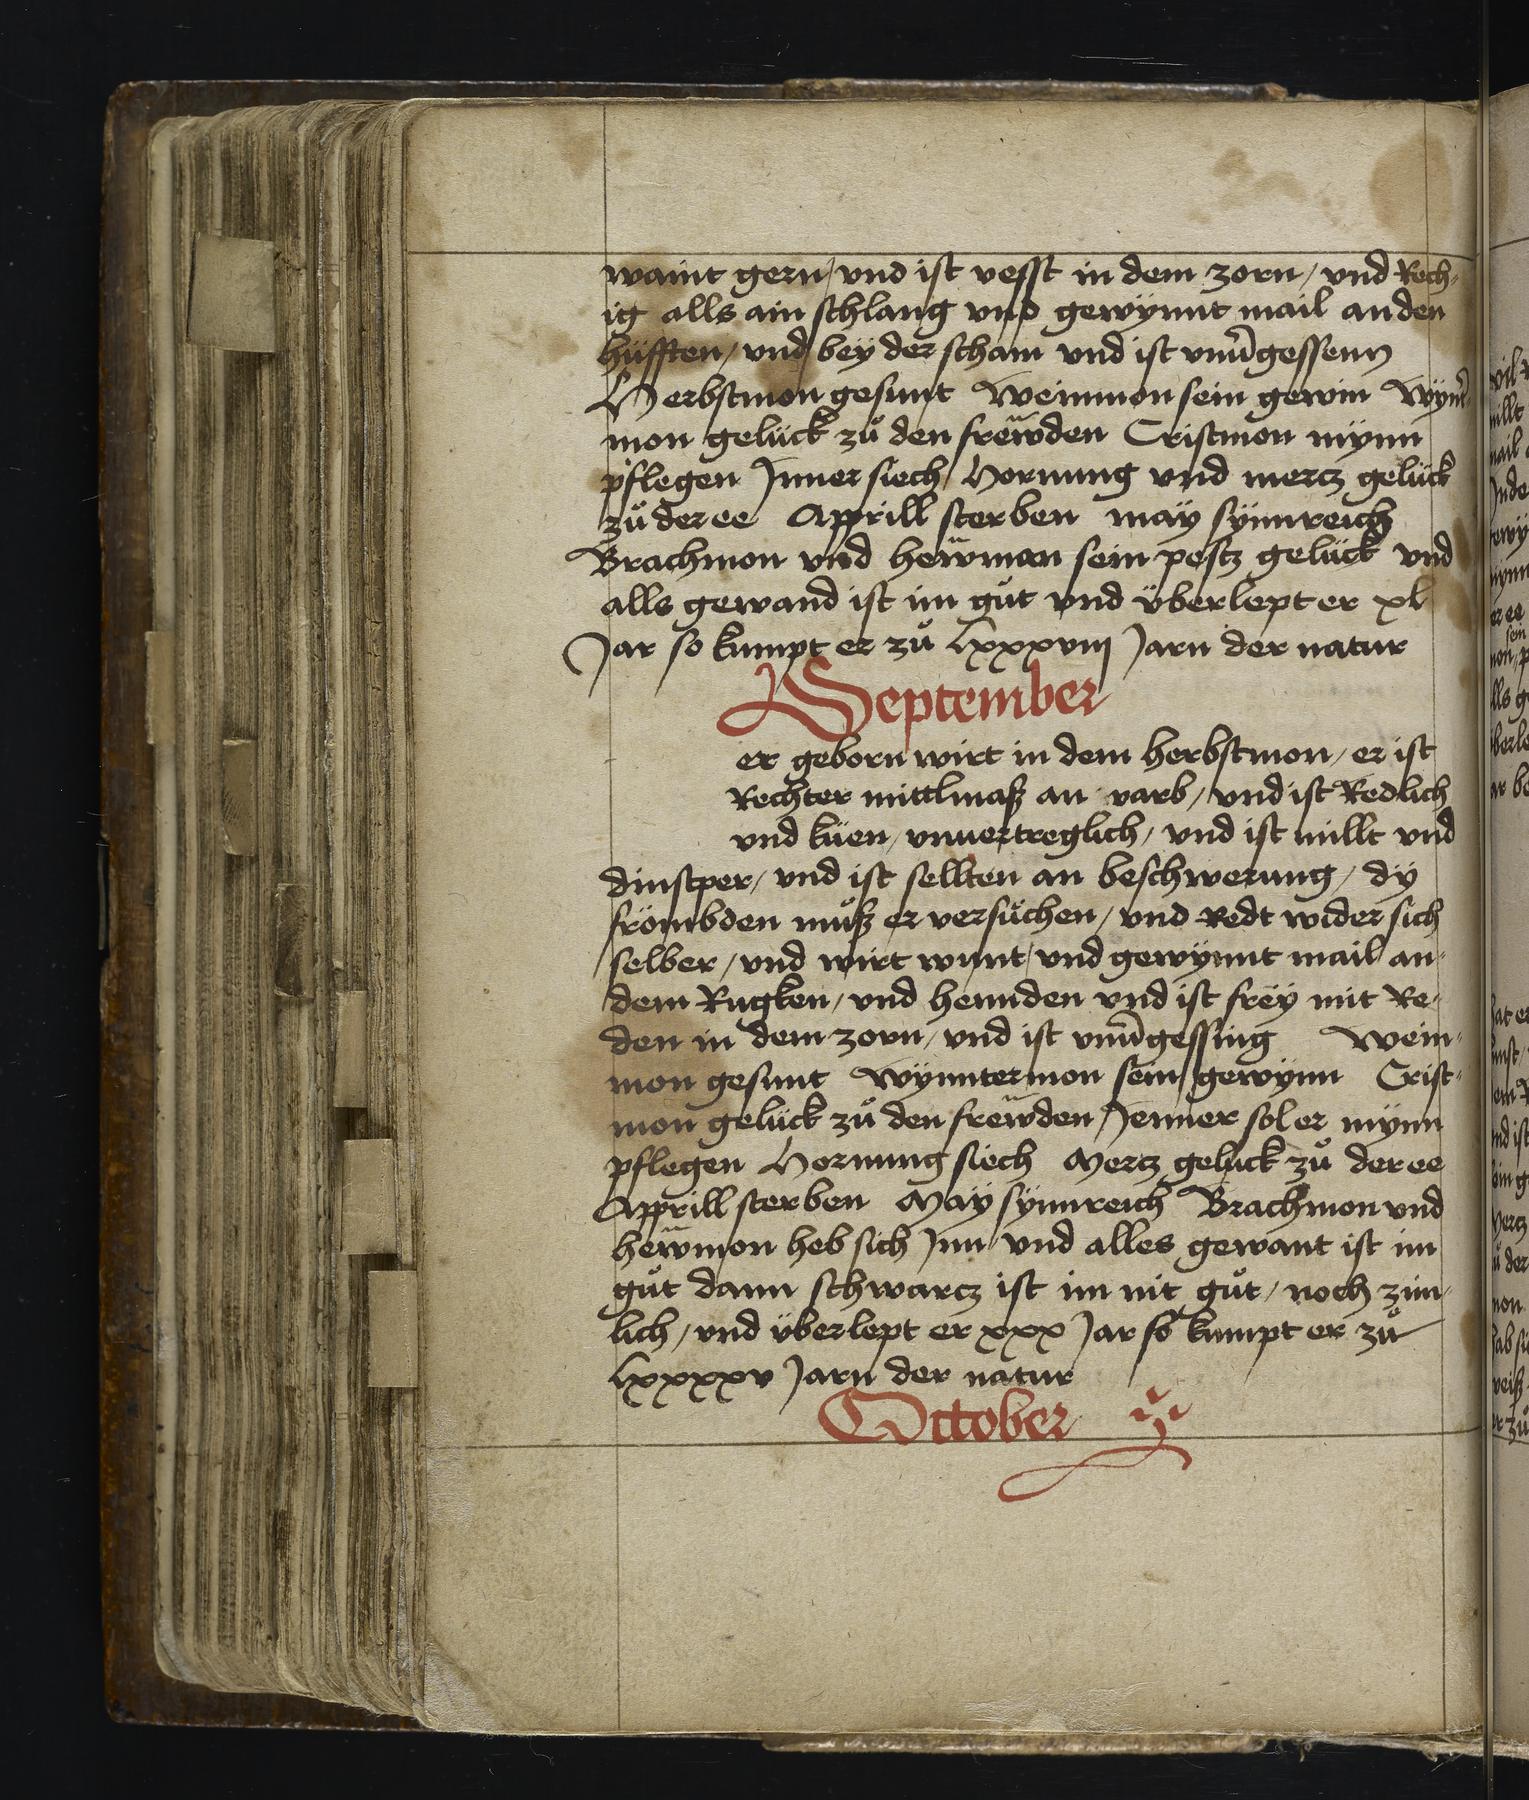 waint gern / vnd ist vesst in dem zorn / vnd Rech-
ig alls ain schlang vnd gewÿnnt mail an den
hüfften / vnd beÿ der scham vnd ist vnu̅gessenn
Herbstmon gesunt Weinmon sein gewin Wÿnt̅
mon gelück zů den frewden Cristmon mÿnn
pflegen Jnner siech / Hornung vnd mercz gelück
zů der ee Apprill sterben maÿ sÿnnreich
Brachmon vnd hewmon sein pestz gelück vnd
alls gewand ist im gůt vnd überlept er xl
Jar so kumpt er zů lxxxviij Jarn der natur
September
er geborn wirt in dem herbstmon / er ist
Rechter mittlmasz an varb / vnd ist Redlich
vnd küen / vnuertreglich / vnd ist millt vnd
dinstper / vnd ist sellten an beschwerung / dÿ
frömbden můsz er versůchen / vnd Redt wider sich
selber / vnd wirt wunt / vnd gewÿnnt mail an-
dem Rugken / vnd hennden vnd ist freÿ mit Re-
den in dem zorn / vnd ist vnu̅gessing Wein-
mon gesunt Wÿnntermon sein gewÿnn Crist-
mon gelück zů den frewden Jenner sol er mÿnn
pflegen Hornung siech Mercz gelück zů der ee
Apprill sterben Maÿ sÿnnreich Brachmon vnd
hewmon heb sich Jnn vnd alles gewant ist im
gůt dann schwarcz ist im nit gůt / noch zim-
lich / vnd überlept er xxx Jar so kumpt er zů
lxxxxv Jarn der natur
October